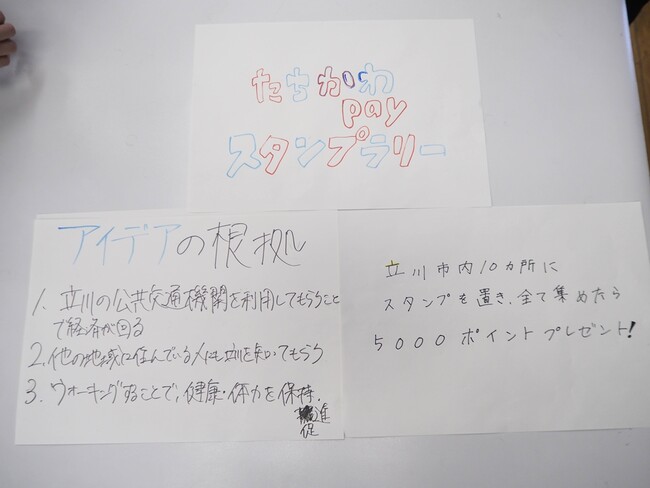 たちかわ
pay
スタンプラリー
アイデアの根拠
1. 立川の公共交通機関を利用してもらうこと
で経済が回る
2. 他の地域に住んでいる人にも立川を知ってもらう
3. ウォーキングすることで、健康・体力を保持.
進
促
立川市内10カ所に
スタンプを置き、全て集めたら
5000ポイントプレゼント!